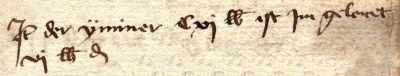 It der ymmer Cxj lb ist Im geleret
vj lb d